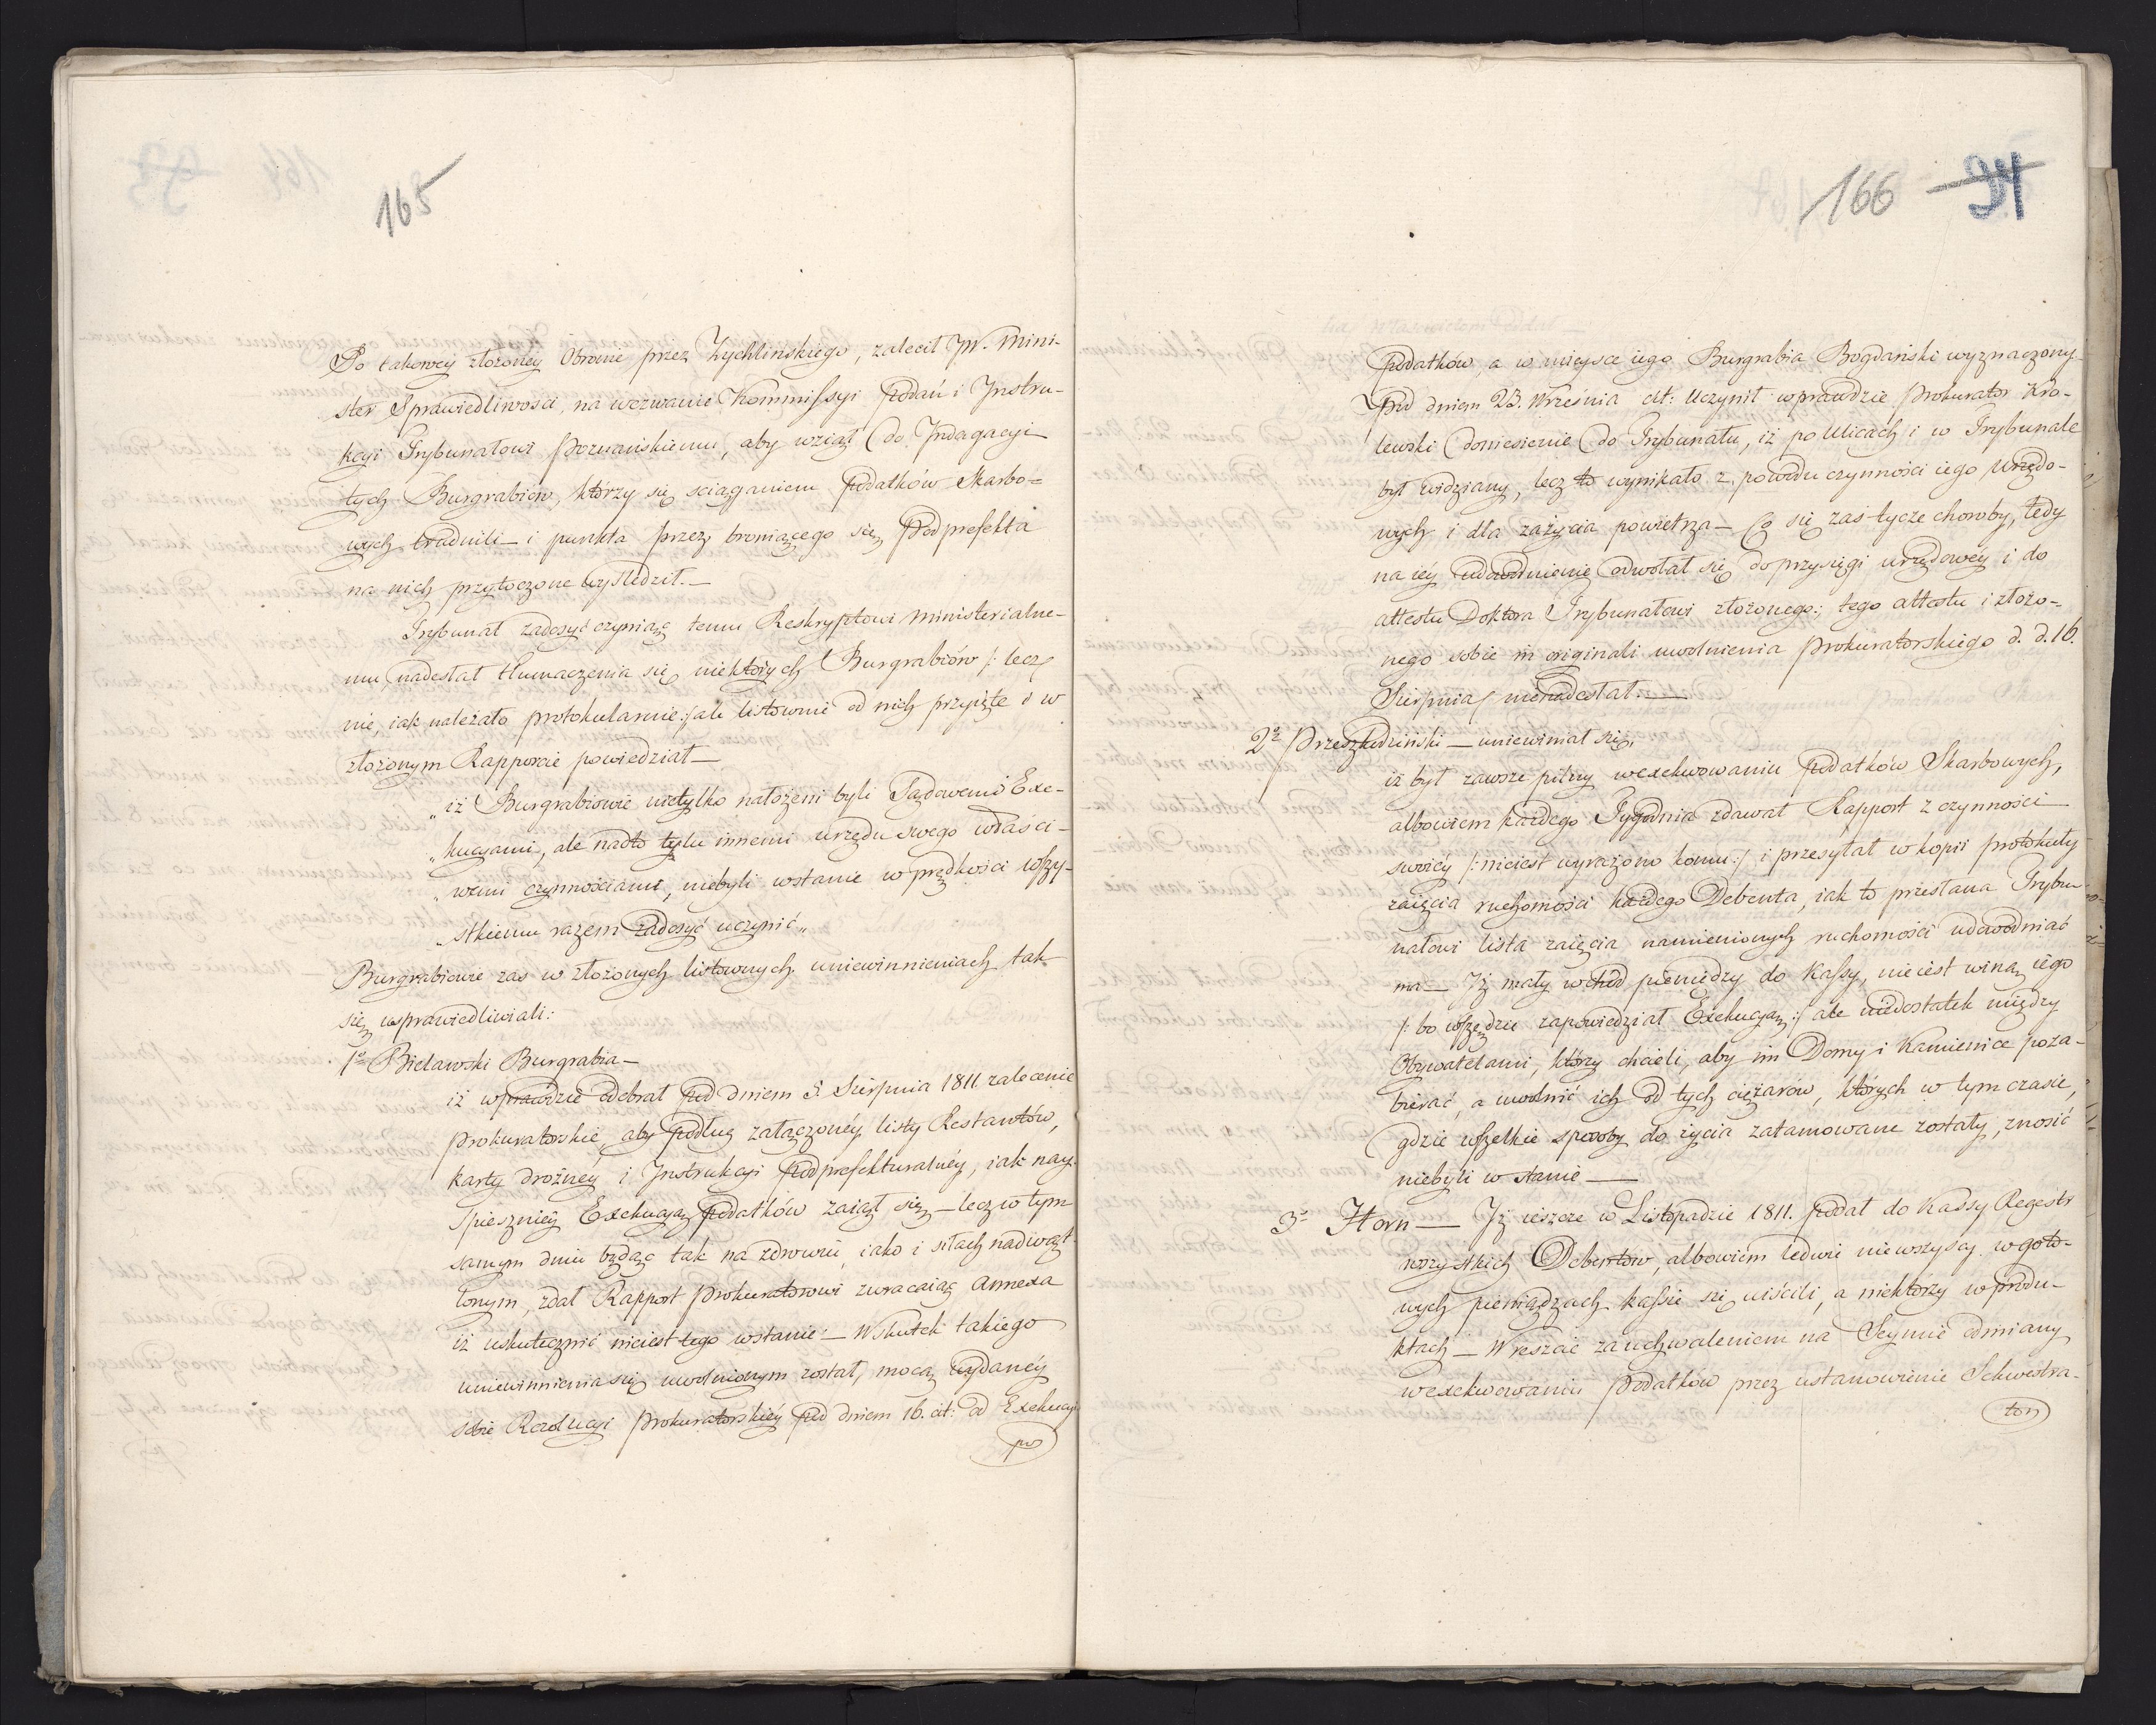 165
Po takowéy złożonéy Obronie przez Zychlińskiego, zalecił JW. Mini-
ster Sprawiedliwości, na wezwanie Kommissyi Podań i Instru-
kcyi Trybunałowi Poznańskiemu, aby wziął do Indagacyi
tych Burgrabiow, którzy się sciąganiem podatków Skarbo=
wych trudnili — i punkta przez broniącego się Podprefekta
na nich przytoczone wyśledził. —
Trybunał zadosyć czyniąc temu Reskryptowi Ministerialne-
mu, nadesłał tłumaczenia się niektórych Burgrabiów /: lecz
nie, iak należało protokularnie :/ ale listownie od nich przyięte i w
złożonym Rapporcie powiedział —
„iż Burgrabiowie nietylko nałożeni byli Sądowemi Exe-
„kucyami, ale nadto tylu innemi urzędu swego właści-
„wemi czynnościami, niebyli wstanie w prędkości wszy-
„stkiemu razem zadosyć uczynić„
Burgrabiowie zas w złożonych listownych uniewinnieniach tak
się usprawiedliwiali:
1o Bielawski Burgrabia —
iż wprawdzie odebrał pod dniem 3. Sierpnia 1811 zalecenie
Prokuratorskie, aby podług załączonéy listy Restantów,
karty drożnéy i Instrukcyi Podprefekturalnéy, iak nay-
spieszniéy Exekucyą podatków zaiął się — lecz w tym
samym dniu będąc tak na zdrowiu, iako i siłach nadwąt-
lonym, zdał Rapport Prokuratorowi zwracaiąc annexa
iż uskutecznić nieiest tego wstanie: — W skutek takiego
uniewinnienia się uwolnionym został, mocą wydanéy
sobie Rezolucyi Prokuratorskiéy pod dniem 16. cit: od Exekucyi
po
166 94
podatków, a w mieysce iego Burgrabia Bogdański wyznaczony
Pod dniem 23. Września cit: Uczynił wprawdzie Prokurator Kro-
lewski doniesienie do Trybunału, iż po Ulicach i w Trybunale
był widziany, lecz to wynikało z powodu czynności iego Urzędo-
wych i dla zażycia powietrza — Co się zaś tycze choroby, tedy
na iéy udowodnienie odwołał się do przysięgi urzędowéy i do
attestu Doktora Trybunałowi złożonego; tego attestu i złożo=
nego sobie in originali uwolnienia Prokuratorskiego d. d. 16.
Sierpnia nienadesłał. —
2o Przeszkodziński — uniewinniał się,
iż był zawsze pilny wexekwowaniu podatków Skarbowych,
albowiem każdego Tygodnia zdawał Rapport z czynności
swoiéy /: nieiest wyrażono komu :/ i przesyłał w kopii protokuły
zaięcia ruchomości każdego Debenta, iak to przesłana Trybu-
nałowi lista zaięcia namienionych ruchomości udowodniać
ma — Iż mały wchód pieniędzy do Kassy, nieiest winą iego
/: bo wszędzie zapowiedział Exekucyą :/ ale niedostatek między
Obywatelami, którzy chcieli, aby im Domy i Kamienice poza-
bierać, a uwolnić ich od tych ciężarów, których w tym czasie,
gdzie wszelkie sposoby do życia zatamowane zostały, znosić
niebyli w stanie —
3o Horn — Iż ieszcze w Listopadzie 1811. podał do Kassy Regestr
wszystkich Debentów, albowiem ledwie niewszyscy w goto-
wych pieniądzach kassie się uiścili, a niektórzy w produ-
ktach — Wreszcie za uchwaleniem na Seymie odmiany
wexekwowaniu podatków przez ustanowienie Sekwestra-
tor